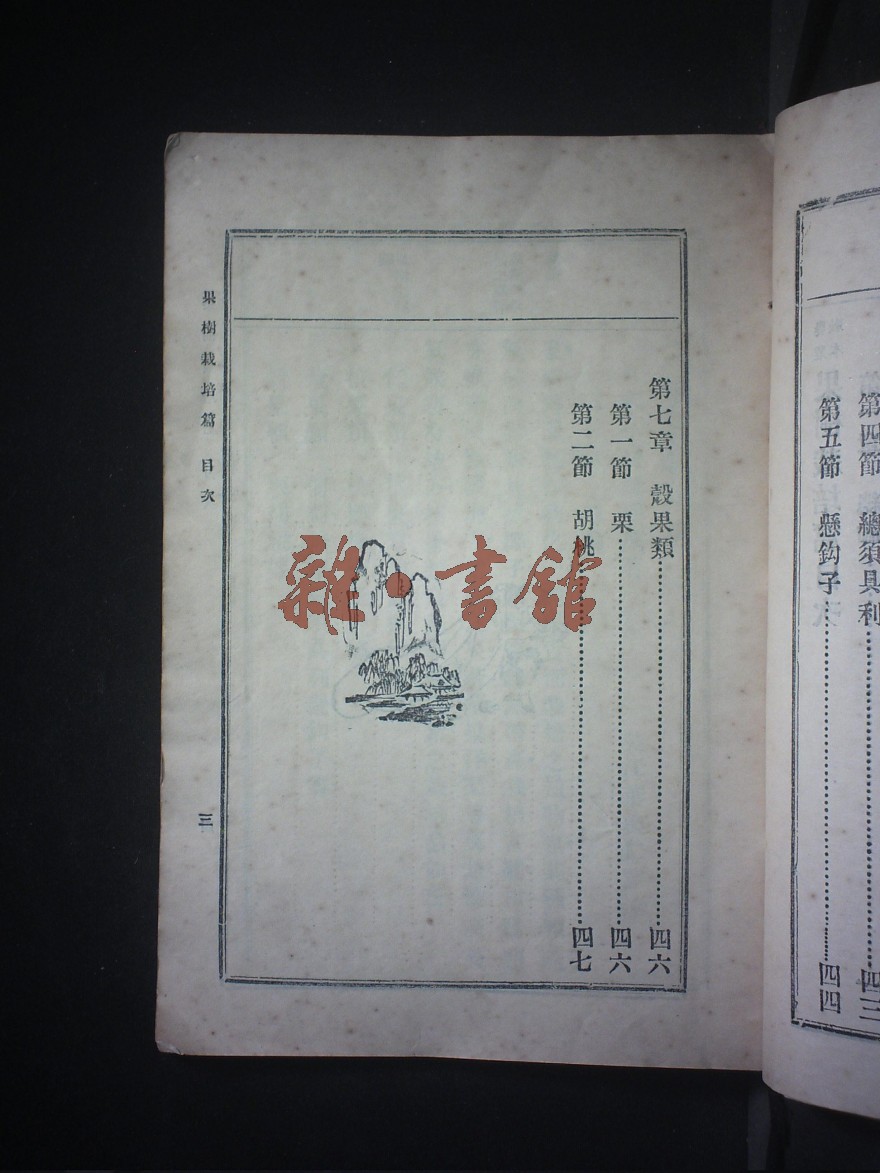 第四節　總須具利……四三
第五節　懸鈎子……四四
第七章　殼果類……四六
第一節　栗……四六
第二節　胡桃……四七
果樹栽培篇　目次
三
雜·書舘